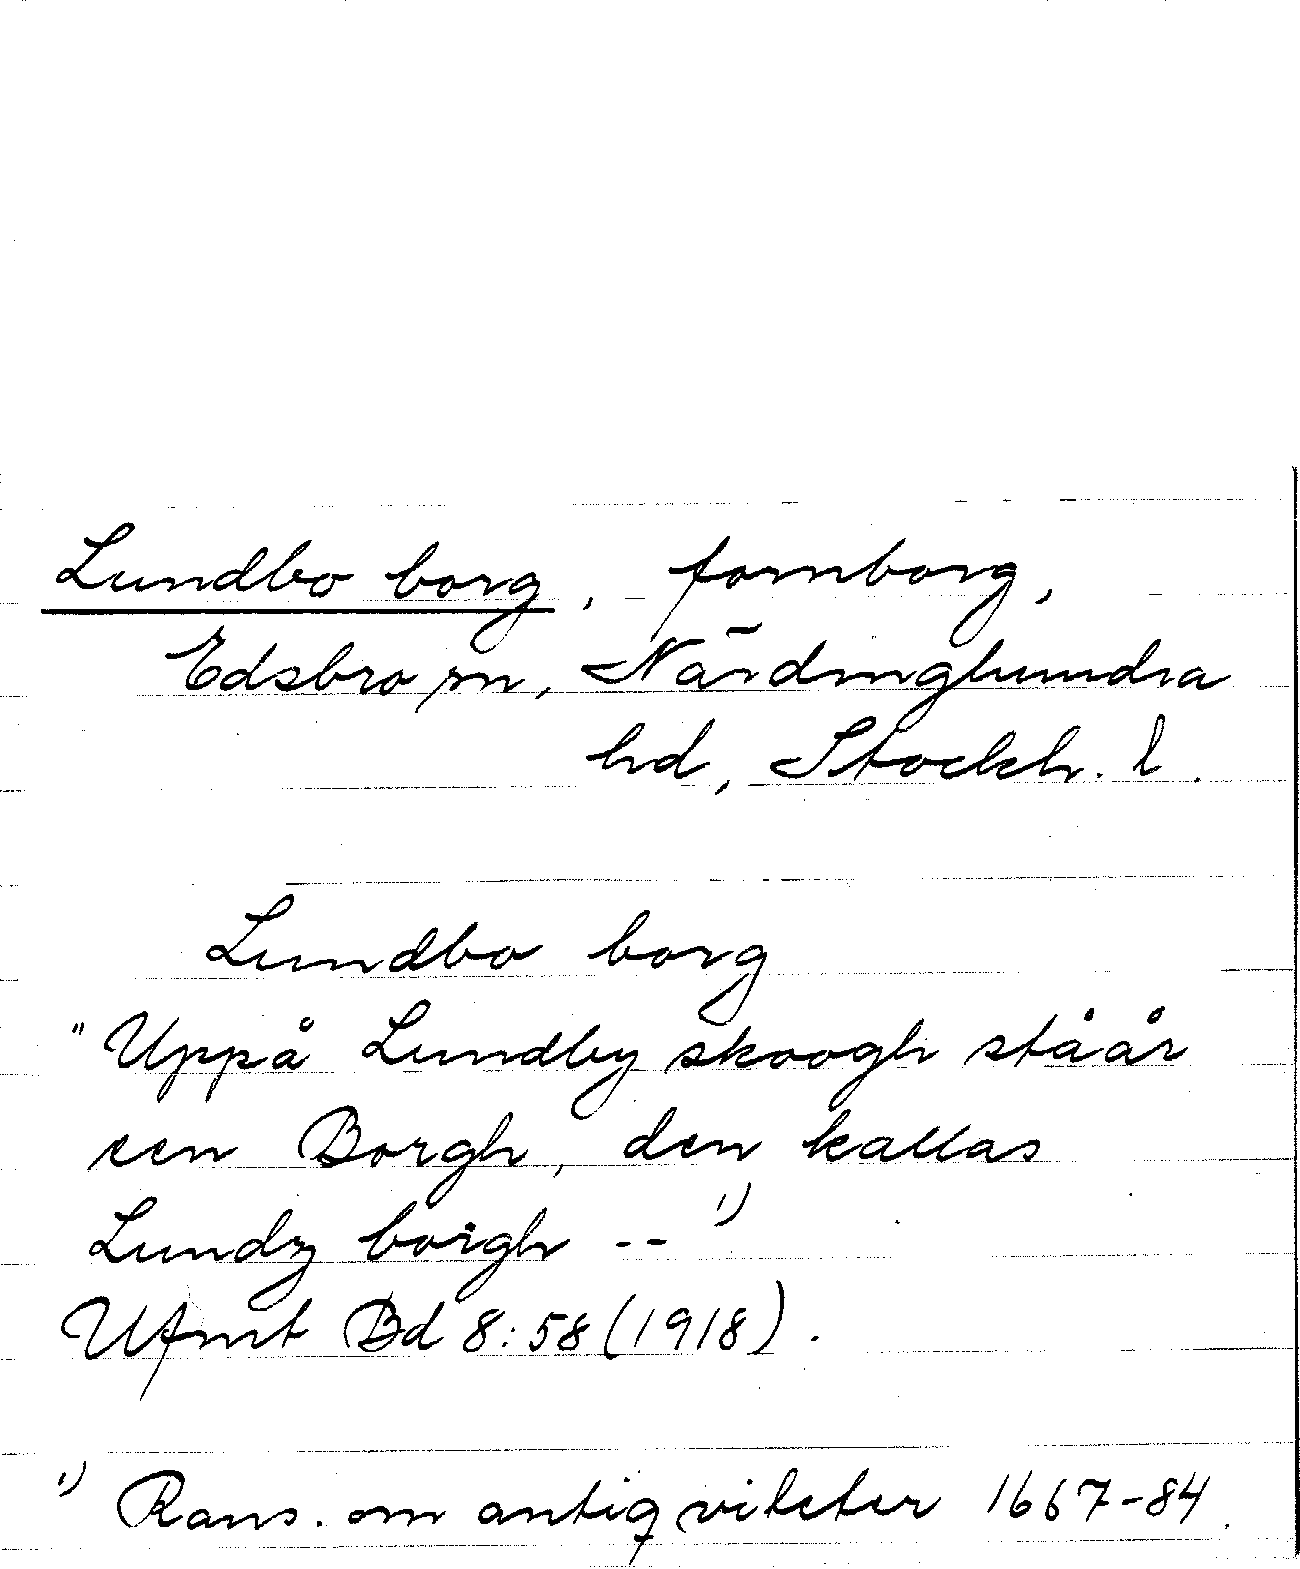 Lundbo borg, fornborg,
Edsbro sn, Närdinghundra
hd, Stockh. l.
Lundbo borg
"Uppå Lundby skoogh ståår
een Borgh, den kallas
Lundz borgh -- 1)
Ufmt Bd 8:58 (1918).
1) Rans. om antiqviteter 1667-84.